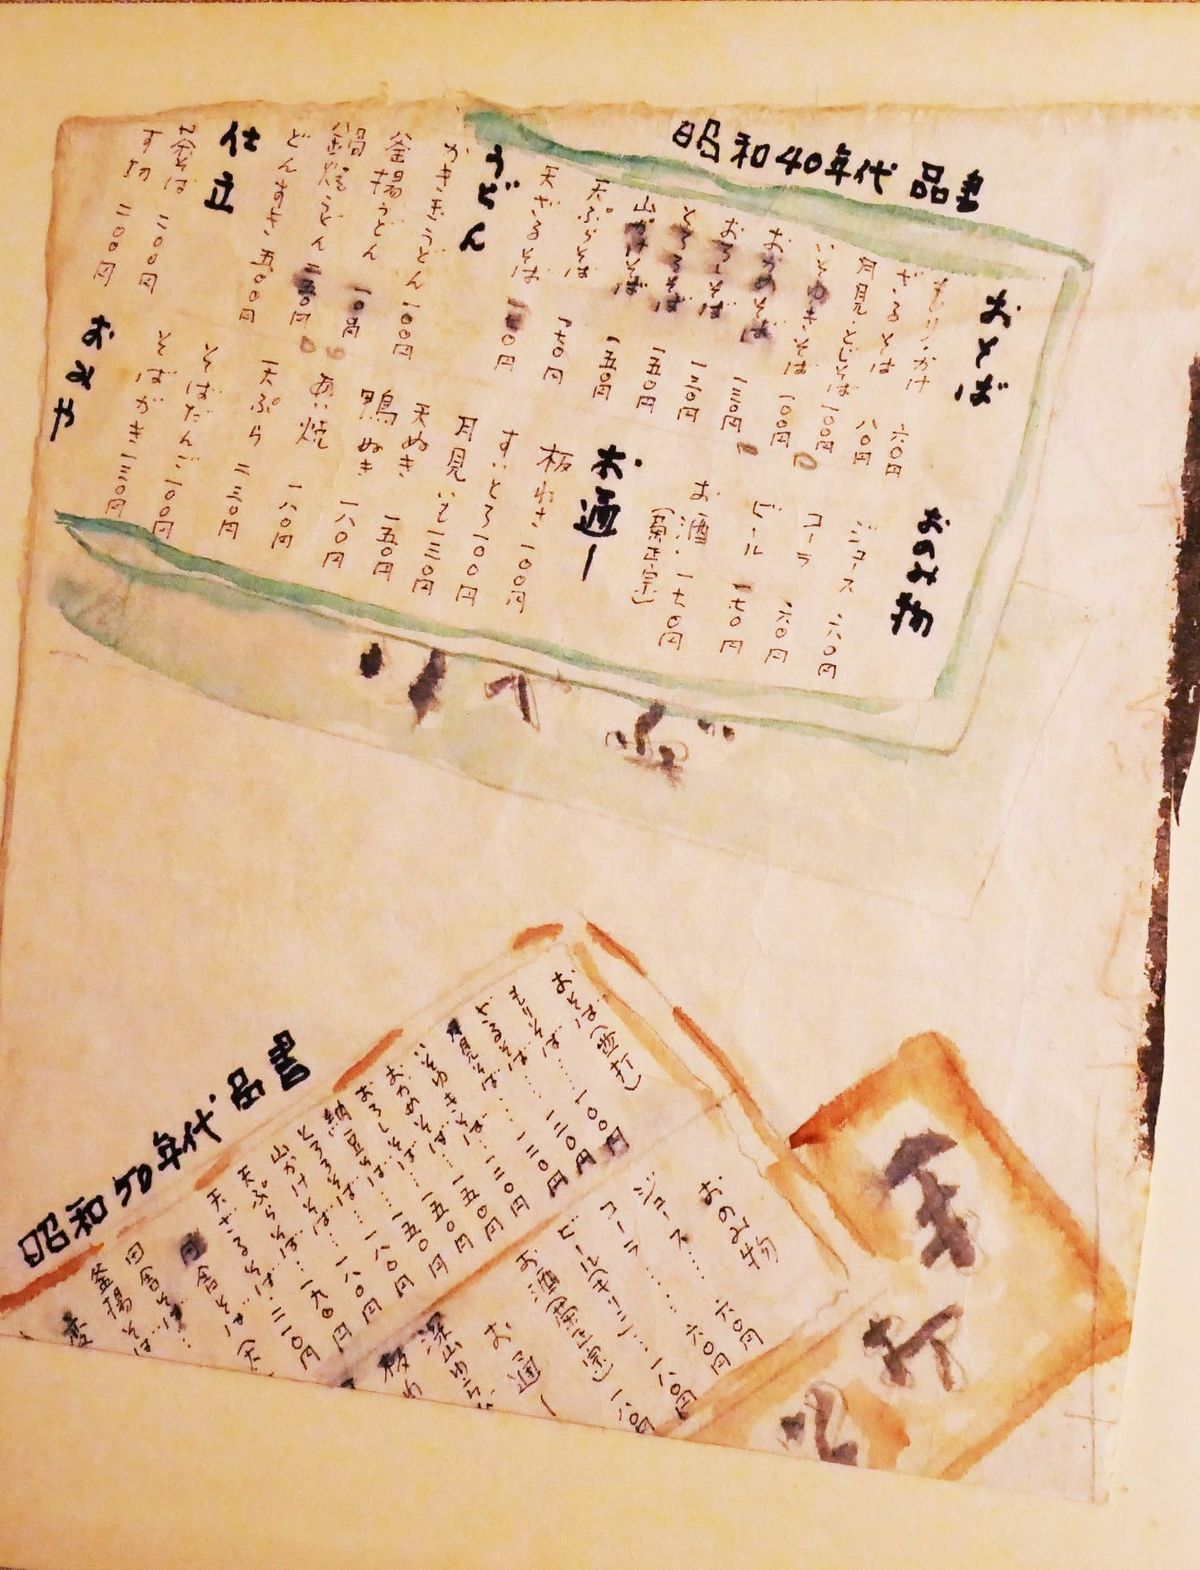 昭和40年代 品書
おそば
もり・かけ 六〇円
ざるそば 八〇円
月見・とじそば 一〇〇円
いそゆきそば 一〇〇円
おかめそば 一三〇円
おろしそば 一三〇円
とろろそば 一五〇円
山かけそば 一五〇円
天ぷらそば 一七〇円
天ざるそば
うどん
かきまうどん 一〇〇円
釜揚うどん
鍋焼うどん 二五〇円
どんすき 五〇〇円
仕立
釜そば 二〇〇円
す切 二〇〇円
おのみ物
ジュース 六〇円
コーラ 六〇円
ビール 一七〇円
お酒 一七〇円
(菊正宗)
お通し
板わさ 一〇〇円
すいとろ 一〇〇円
月見いも 一三〇円
天ぬき 一五〇円
鴨ぬき 一八〇円
あい焼 一八〇円
天ぷら 二三〇円
そばだんご 一〇〇円
そばがき 一三〇円
昭和50年代 品書
おそば
もりそば……一〇〇円
ざるそば……一三〇円
月見そば……一三〇円
いそゆきそば…一三〇円
おかめそば…一五〇円
おろしそば…一五〇円
納豆そば…一五〇円
とろろそば…一八〇円
山かけそば…一八〇円
天ぷらそば…一九〇円
天ざるそば…二一〇円
田舎そば
田舎そば…
釜揚そば
おのみ物
ジュース……六〇円
コーラ……六〇円
ビール(キリン)…一八〇円
お酒(菊正宗) 一八〇円
お通し
板わ
手打